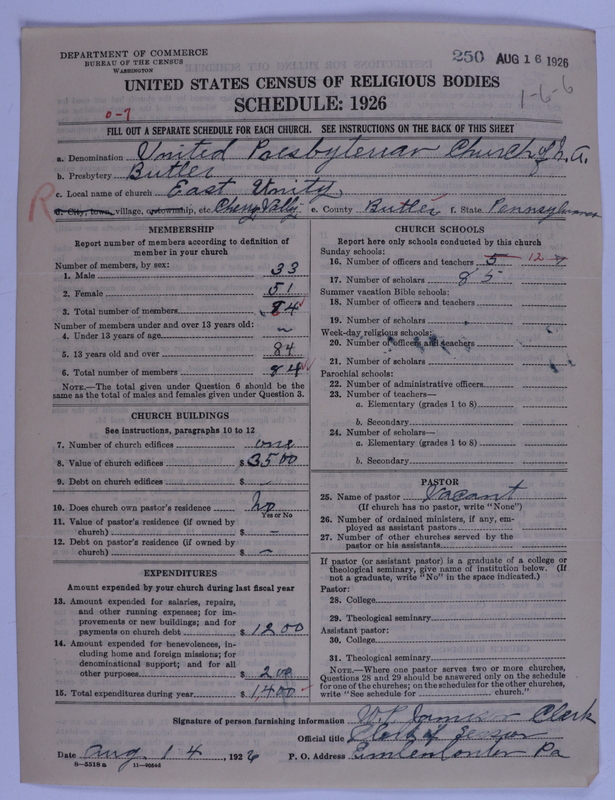 DEPARTMENT OF COMMERCE
BUREAU OF THE CENSUS
WASHINGTON
250 AUG 16 1926
1-6-6
UNITED STATES CENSUS OF RELIGIOUS BODIES
SCHEDULE: 1926
0-7
FILL OUT A SEPARATE SCHEDULE FOR EACH CHURCH. SEE INSTRUCTIONS ON THE BACK OF THIS SHEET
a. Denomination United Presbyterian Church of N. A.
b. Presbytery Butler
c. Local name of church East Unity
R
d. City, town, village, or township, etc. Cherry Vally e. County Butler f. State Pennsylvania
MEMBERSHIP
Report number of members according to definition of
member in your church
Number of members, by sex:
1. Male 33
2. Female 51
3. Total number of members 84
Number of members under and over 13 years old:
4. Under 13 years of age
5. 13 years old and over 84
6. Total number of members 84
NOTE.—The total given under Question 6 should be the
same as the total of males and females given under Question 3.
CHURCH BUILDINGS
See instructions, paragraphs 10 to 12
7. Number of church edifices one
8. Value of church edifices $3500
9. Debt on church edifices $ -
10. Does church own pastor's residence No
Yes or No
11. Value of pastor's residence (if owned by
church) $ -
12. Debt on pastor's residence (if owned by
church) $ -
EXPENDITURES
Amount expended by your church during last fiscal year
13. Amount expended for salaries, repairs,
and other running expenses; for im-
provements or new buildings; and for
payments on church debt $1200
14. Amount expended for benevolences, in-
cluding home and foreign missions; for
denominational support; and for all
other purposes $200
15. Total expenditures during year $1,400
CHURCH SCHOOLS
Report here only schools conducted by this church
Sunday schools:
16. Number of officers and teachers 5 12
17. Number of scholars 85
Summer vacation Bible schools:
18. Number of officers and teachers
19. Number of scholars
Week-day religious schools:
20. Number of officers and teachers
21. Number of scholars
Parochial schools:
22. Number of administrative officers
23. Number of teachers—
a. Elementary (grades 1 to 8)
b. Secondary
24. Number of scholars—
a. Elementary (grades 1 to 8)
b. Secondary
PASTOR
25. Name of pastor Vacant
(If church has no pastor, write "None")
26. Number of ordained ministers, if any, em-
ployed as assistant pastors
27. Number of other churches served by the
pastor or his assistants
If pastor (or assistant pastor) is a graduate of a college or
theological seminary, give name of institution below. (If
not a graduate, write "No" in the space indicated.)
Pastor:
28. College
29. Theological seminary
Assistant pastor:
30. College
31. Theological seminary
NOTE.—Where one pastor serves two or more churches,
Questions 28 and 29 should be answered only on the schedule
for one of the churches; on the schedules for the other churches,
write "See schedule for church."
Signature of person furnishing information Clark
Official title Clerk of Session
Date Aug. 14, 1926 P. O. Address Emlenton Pa
8-5518a 11-9056d